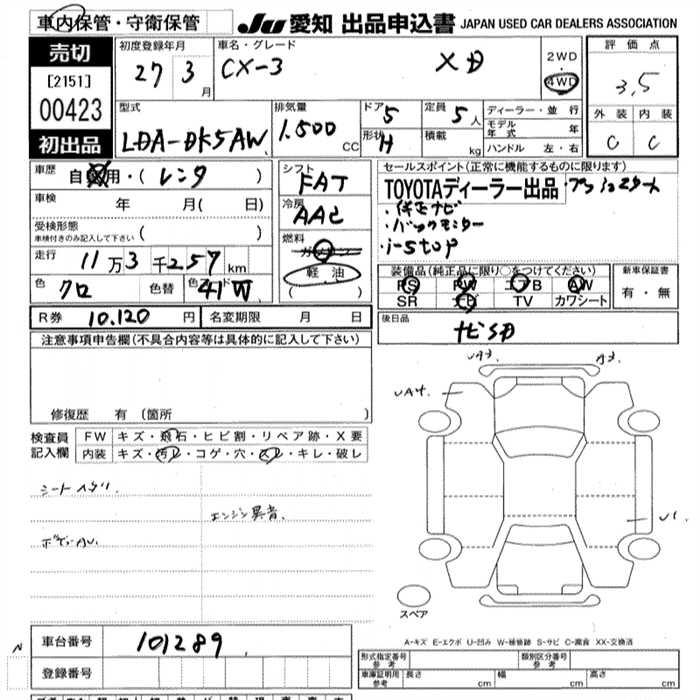 車内保管・守衛保管
JU 愛知 出品申込書 JAPAN USED CAR DEALERS ASSOCIATION
売切
[2151]
00423
初出品
初度登録年月
27 3 月
車名・グレード
CX-3 XD
2WD
・
4WD
評価点
3,5
外装 内装
C C
型式
LDA-DK5AW
排気量
1.500 CC
ドア 5
形状 H
定員 5 人
積載 kg
ディーラー・並行
モデル年式 年
ハンドル 左・右
車歴 自 用・( レンタ )
車検 年 月( 日)
受検形態
車検付きのみ記入して下さい ( )
走行 11 万 3 千 257 km
色 クロ 色替 41W
シフト FAT
冷房 AAC
燃料
ガソリン
軽油
( )
セールスポイント(正常に機能するものに限ります)
TOYOTAディーラー出品
・バックモニター
・i-stop
装備品(純正品に限り○をつけてください)
PS PW エアB AW
SR ナビ TV カワシート
新車保証書
有・無
R券 10.120 円 名変期限 月 日
後日品
ナビSD
注意事項申告欄(不具合内容等は具体的に記入して下さい)
修復歴 有 (箇所 )
検査員記入欄
FW キズ・飛石・ヒビ割・リペア跡・X要
内装 キズ・汚レ・コゲ・穴・スレ・キレ・破レ
エンジン異音.
A3
U1
スペア
A-キズ E-エクボ U-凹み W-補修跡 S-サビ C-腐食 XX-交換済
N
車台番号 101289
登録番号
形式指定番号 参考
類別区分番号 参考
車庫証明用 参考 長さ cm 幅 cm 高さ cm